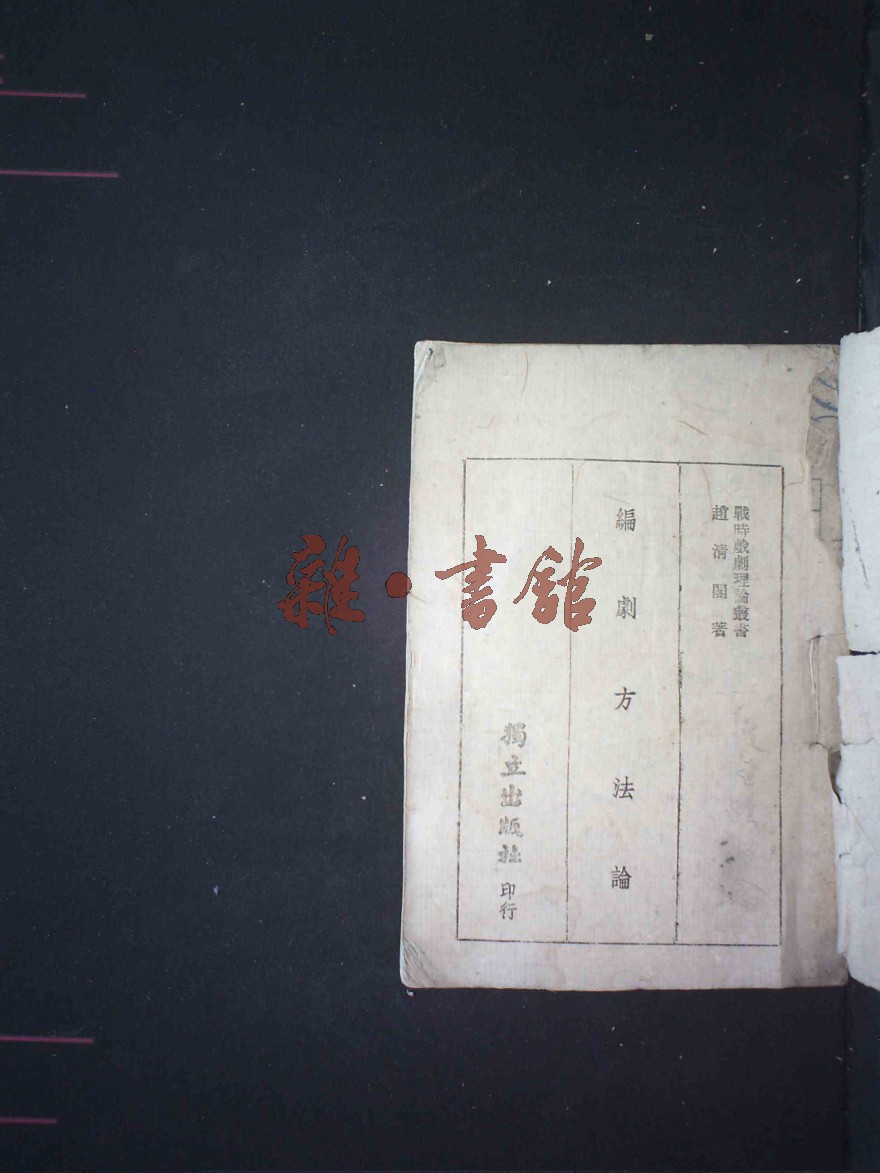 戰時戲劇理論叢書
趙清閣著
編劇方法論
獨立出版社 印行
雜·書館